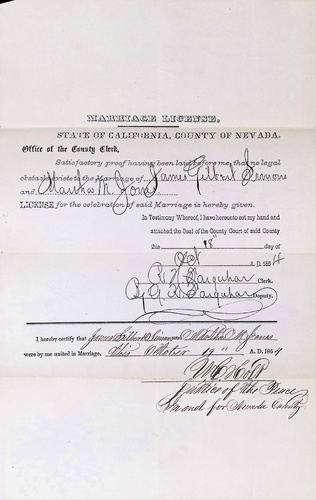 MARRIAGE LICENSE,
STATE OF CALIFORNIA, COUNTY OF NEVADA.
Office of the County Clerk,
Satisfactory proof having been laid before me, that no legal
obstacle exists to the Marriage of James Gilbert Simons
and Martha M. Jones
LICENSE for the celebration of said Marriage is hereby given.
In Testimony Whereof, I have hereunto set my hand and
attached the Seal of the County Court of said County
this 18" day of
Oct A.D. 1864
R. H. Farquhar Clerk.
By G. K. Farquhar Deputy.
I hereby certify that James Gilbert Simons and Martha M Jones
were by me united in Marriage, this October 19" A. D. 1864
Justice of the Peace
in and for Nevada County